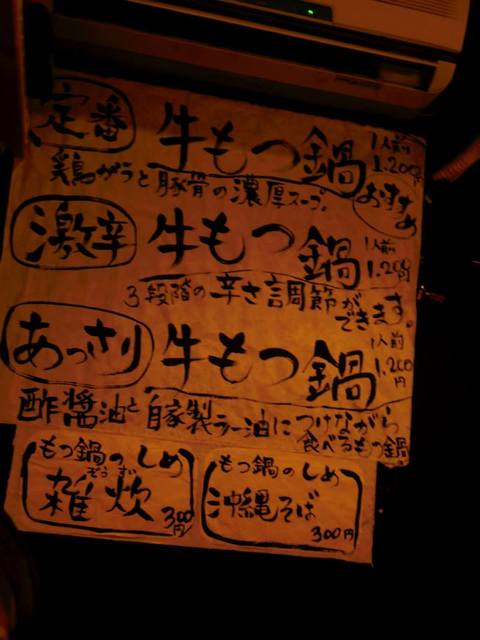 定番 牛もつ鍋 1人前 1.200円
鶏がらと豚骨の濃厚スープ。 おすすめ
激辛 牛もつ鍋 1人前 1.200円
3段階の辛さ調節ができます。
あっさり 牛もつ鍋 1人前 1.200円
酢醤油と自家製ラー油につけながら
食べるもつ鍋
もつ鍋のしめ
ぞうすい
雑炊 300円
もつ鍋のしめ
沖縄そば
300円